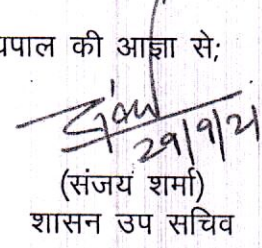 यपाल की आज्ञा से;
29/9/21
(संजय शर्मा)
शासन उप सचिव